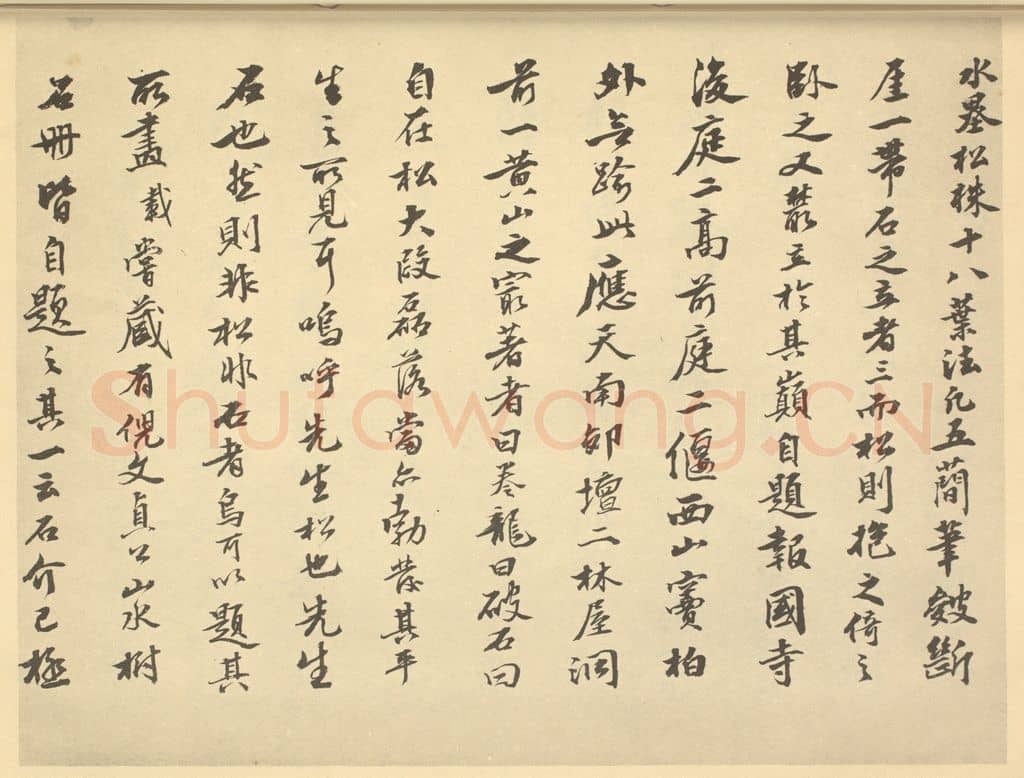 水墨松株十八葉法凡五簡筆皴斷
厓一帶石之立者三而松則抱之倚之
臥之又叢立於其巔自題報國寺
後庭二高前庭二偃西山竇柏
外無踰此應天南郊壇二林屋洞
前一黃山之最著者曰卷龍曰破石曰
自在松大段磊落當亦勃發其平
生之所見耳嗚呼先生松也先生
石也然則非松非石者烏可以題其
所畫哉嘗藏有倪文貞公山水樹
石冊皆自題之其一云石介已極
Shufawang.CN